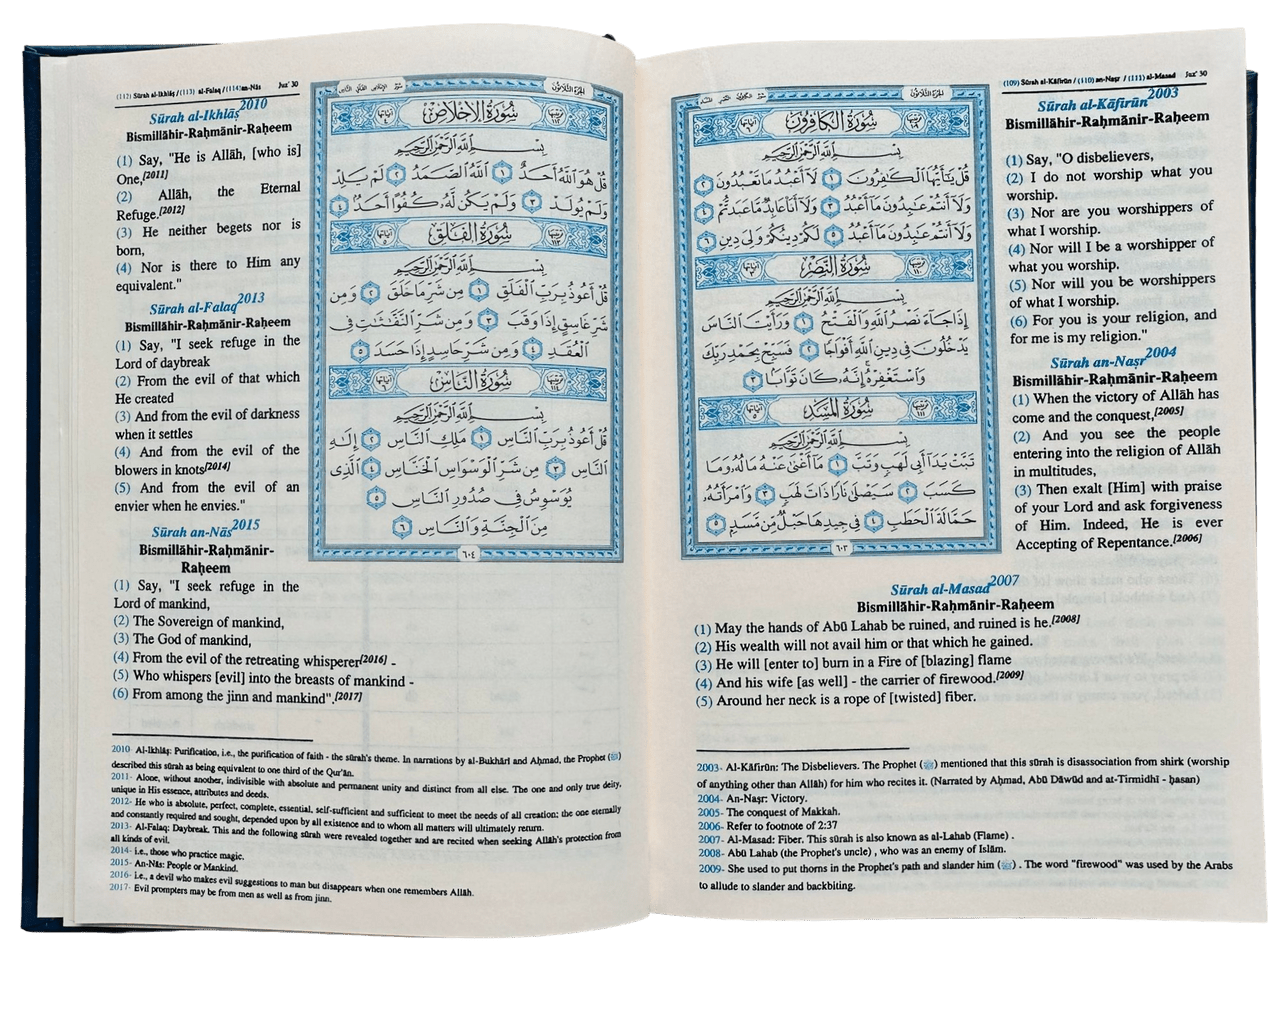 (109) Sūrah al-Kāfirūn / (110) an-Naṣr / (111) al-Masad Juz' 30
Sūrah al-Kāfirūn2003
Bismillāhir-Raḥmānir-Raḥeem
(1) Say, "O disbelievers,
(2) I do not worship what you
worship.
(3) Nor are you worshippers of
what I worship.
(4) Nor will I be a worshipper of
what you worship.
(5) Nor will you be worshippers
of what I worship.
(6) For you is your religion, and
for me is my religion."
Sūrah an-Naṣr2004
Bismillāhir-Raḥmānir-Raḥeem
(1) When the victory of Allāh has
come and the conquest,[2005]
(2) And you see the people
entering into the religion of Allāh
in multitudes,
(3) Then exalt [Him] with praise
of your Lord and ask forgiveness
of Him. Indeed, He is ever
Accepting of Repentance.[2006]
الجزء الثلاثون
ترتيبها ١٠٩ سُورَةُ الكَافِرُونَ آياتها ٦
بِسْمِ اللَّهِ الرَّحْمَٰنِ الرَّحِيمِ
قُلْ يَٰٓأَيُّهَا ٱلْكَٰفِرُونَ ١ لَآ أَعْبُدُ مَا تَعْبُدُونَ ٢
وَلَآ أَنتُمْ عَٰبِدُونَ مَآ أَعْبُدُ ٣ وَلَآ أَنَا۠ عَابِدٌ مَّا عَبَدتُّمْ ٤
وَلَآ أَنتُمْ عَٰبِدُونَ مَآ أَعْبُدُ ٥ لَكُمْ دِينُكُمْ وَلِىَ دِينِ ٦
ترتيبها ١١٠ سُورَةُ النَّصْرِ آياتها ٣
بِسْمِ اللَّهِ الرَّحْمَٰنِ الرَّحِيمِ
إِذَا جَآءَ نَصْرُ ٱللَّهِ وَٱلْفَتْحُ ١ وَرَأَيْتَ ٱلنَّاسَ
يَدْخُلُونَ فِى دِينِ ٱللَّهِ أَفْوَاجًا ٢ فَسَبِّحْ بِحَمْدِ رَبِّكَ
وَٱسْتَغْفِرْهُ إِنَّهُۥ كَانَ تَوَّابًۢا ٣
ترتيبها ١١١ سُورَةُ المَسَدِ آياتها ٥
بِسْمِ اللَّهِ الرَّحْمَٰنِ الرَّحِيمِ
تَبَّتْ يَدَآ أَبِى لَهَبٍ وَتَبَّ ١ مَآ أَغْنَىٰ عَنْهُ مَالُهُۥ وَمَا
كَسَبَ ٢ سَيَصْلَىٰ نَارًا ذَاتَ لَهَبٍ ٣ وَٱمْرَأَتُهُۥ
حَمَّالَةَ ٱلْحَطَبِ ٤ فِى جِيدِهَا حَبْلٌ مِّن مَّسَدٍۭ ٥
٦٠٣
Sūrah al-Masad2007
Bismillāhir-Raḥmānir-Raḥeem
(1) May the hands of Abū Lahab be ruined, and ruined is he.[2008]
(2) His wealth will not avail him or that which he gained.
(3) He will [enter to] burn in a Fire of [blazing] flame
(4) And his wife [as well] - the carrier of firewood.[2009]
(5) Around her neck is a rope of [twisted] fiber.
2003- Al-Kāfirūn: The Disbelievers. The Prophet (ﷺ) mentioned that this sūrah is disassociation from shirk (worship
of anything other than Allāh) for him who recites it. (Narrated by Aḥmad, Abū Dāwūd and at-Tirmidhī - ḥasan)
2004- An-Naṣr: Victory.
2005- The conquest of Makkah.
2006- Refer to footnote of 2:37
2007- Al-Masad: Fiber. This sūrah is also known as al-Lahab (Flame) .
2008- Abū Lahab (the Prophet's uncle) , who was an enemy of Islām.
2009- She used to put thorns in the Prophet's path and slander him (ﷺ) . The word "firewood" was used by the Arabs
to allude to slander and backbiting.
(112) Sūrah al-Ikhlāṣ / (113) al-Falaq / (114) an-Nās Juz' 30
Sūrah al-Ikhlāṣ2010
Bismillāhir-Raḥmānir-Raḥeem
(1) Say, "He is Allāh, [who is]
One,[2011]
(2) Allāh, the Eternal
Refuge.[2012]
(3) He neither begets nor is
born,
(4) Nor is there to Him any
equivalent."
Sūrah al-Falaq2013
Bismillāhir-Raḥmānir-Raḥeem
(1) Say, "I seek refuge in the
Lord of daybreak
(2) From the evil of that which
He created
(3) And from the evil of darkness
when it settles
(4) And from the evil of the
blowers in knots[2014]
(5) And from the evil of an
envier when he envies."
الجزء الثلاثون
ترتيبها ١١٢ سُورَةُ الإِخْلَاصِ آياتها ٤
بِسْمِ اللَّهِ الرَّحْمَٰنِ الرَّحِيمِ
قُلْ هُوَ ٱللَّهُ أَحَدٌ ١ ٱللَّهُ ٱلصَّمَدُ ٢ لَمْ يَلِدْ
وَلَمْ يُولَدْ ٣ وَلَمْ يَكُن لَّهُۥ كُفُوًا أَحَدٌۢ ٤
ترتيبها ١١٣ سُورَةُ الفَلَقِ آياتها ٥
بِسْمِ اللَّهِ الرَّحْمَٰنِ الرَّحِيمِ
قُلْ أَعُوذُ بِرَبِّ ٱلْفَلَقِ ١ مِن شَرِّ مَا خَلَقَ ٢ وَمِن
شَرِّ غَاسِقٍ إِذَا وَقَبَ ٣ وَمِن شَرِّ ٱلنَّفَّٰثَٰتِ فِى
ٱلْعُقَدِ ٤ وَمِن شَرِّ حَاسِدٍ إِذَا حَسَدَ ٥
ترتيبها ١١٤ سُورَةُ النَّاسِ آياتها ٦
بِسْمِ اللَّهِ الرَّحْمَٰنِ الرَّحِيمِ
قُلْ أَعُوذُ بِرَبِّ ٱلنَّاسِ ١ مَلِكِ ٱلنَّاسِ ٢ إِلَٰهِ
ٱلنَّاسِ ٣ مِن شَرِّ ٱلْوَسْوَاسِ ٱلْخَنَّاسِ ٤ ٱلَّذِى
يُوَسْوِسُ فِى صُدُورِ ٱلنَّاسِ ٥
مِنَ ٱلْجِنَّةِ وَٱلنَّاسِ ٦
٦٠٤
Sūrah an-Nās2015
Bismillāhir-Raḥmānir-
Raḥeem
(1) Say, "I seek refuge in the
Lord of mankind,
(2) The Sovereign of mankind,
(3) The God of mankind,
(4) From the evil of the retreating whisperer[2016] -
(5) Who whispers [evil] into the breasts of mankind -
(6) From among the jinn and mankind".[2017]
2010- Al-Ikhlāṣ: Purification, i.e., the purification of faith - the sūrah's theme. In narrations by al-Bukhārī and Aḥmad, the Prophet (ﷺ)
described this sūrah as being equivalent to one third of the Qur'ān.
2011- Alone, without another, indivisible with absolute and permanent unity and distinct from all else. The one and only true deity,
unique in His essence, attributes and deeds.
2012- He who is absolute, perfect, complete, essential, self-sufficient and sufficient to meet the needs of all creation; the one eternally
and constantly required and sought, depended upon by all existence and to whom all matters will ultimately return.
2013- Al-Falaq: Daybreak. This and the following sūrah were revealed together and are recited when seeking Allāh's protection from
all kinds of evil.
2014- i.e., those who practice magic.
2015- An-Nās: People or Mankind.
2016- i.e., a devil who makes evil suggestions to man but disappears when one remembers Allāh.
2017- Evil prompters may be from men as well as from jinn.